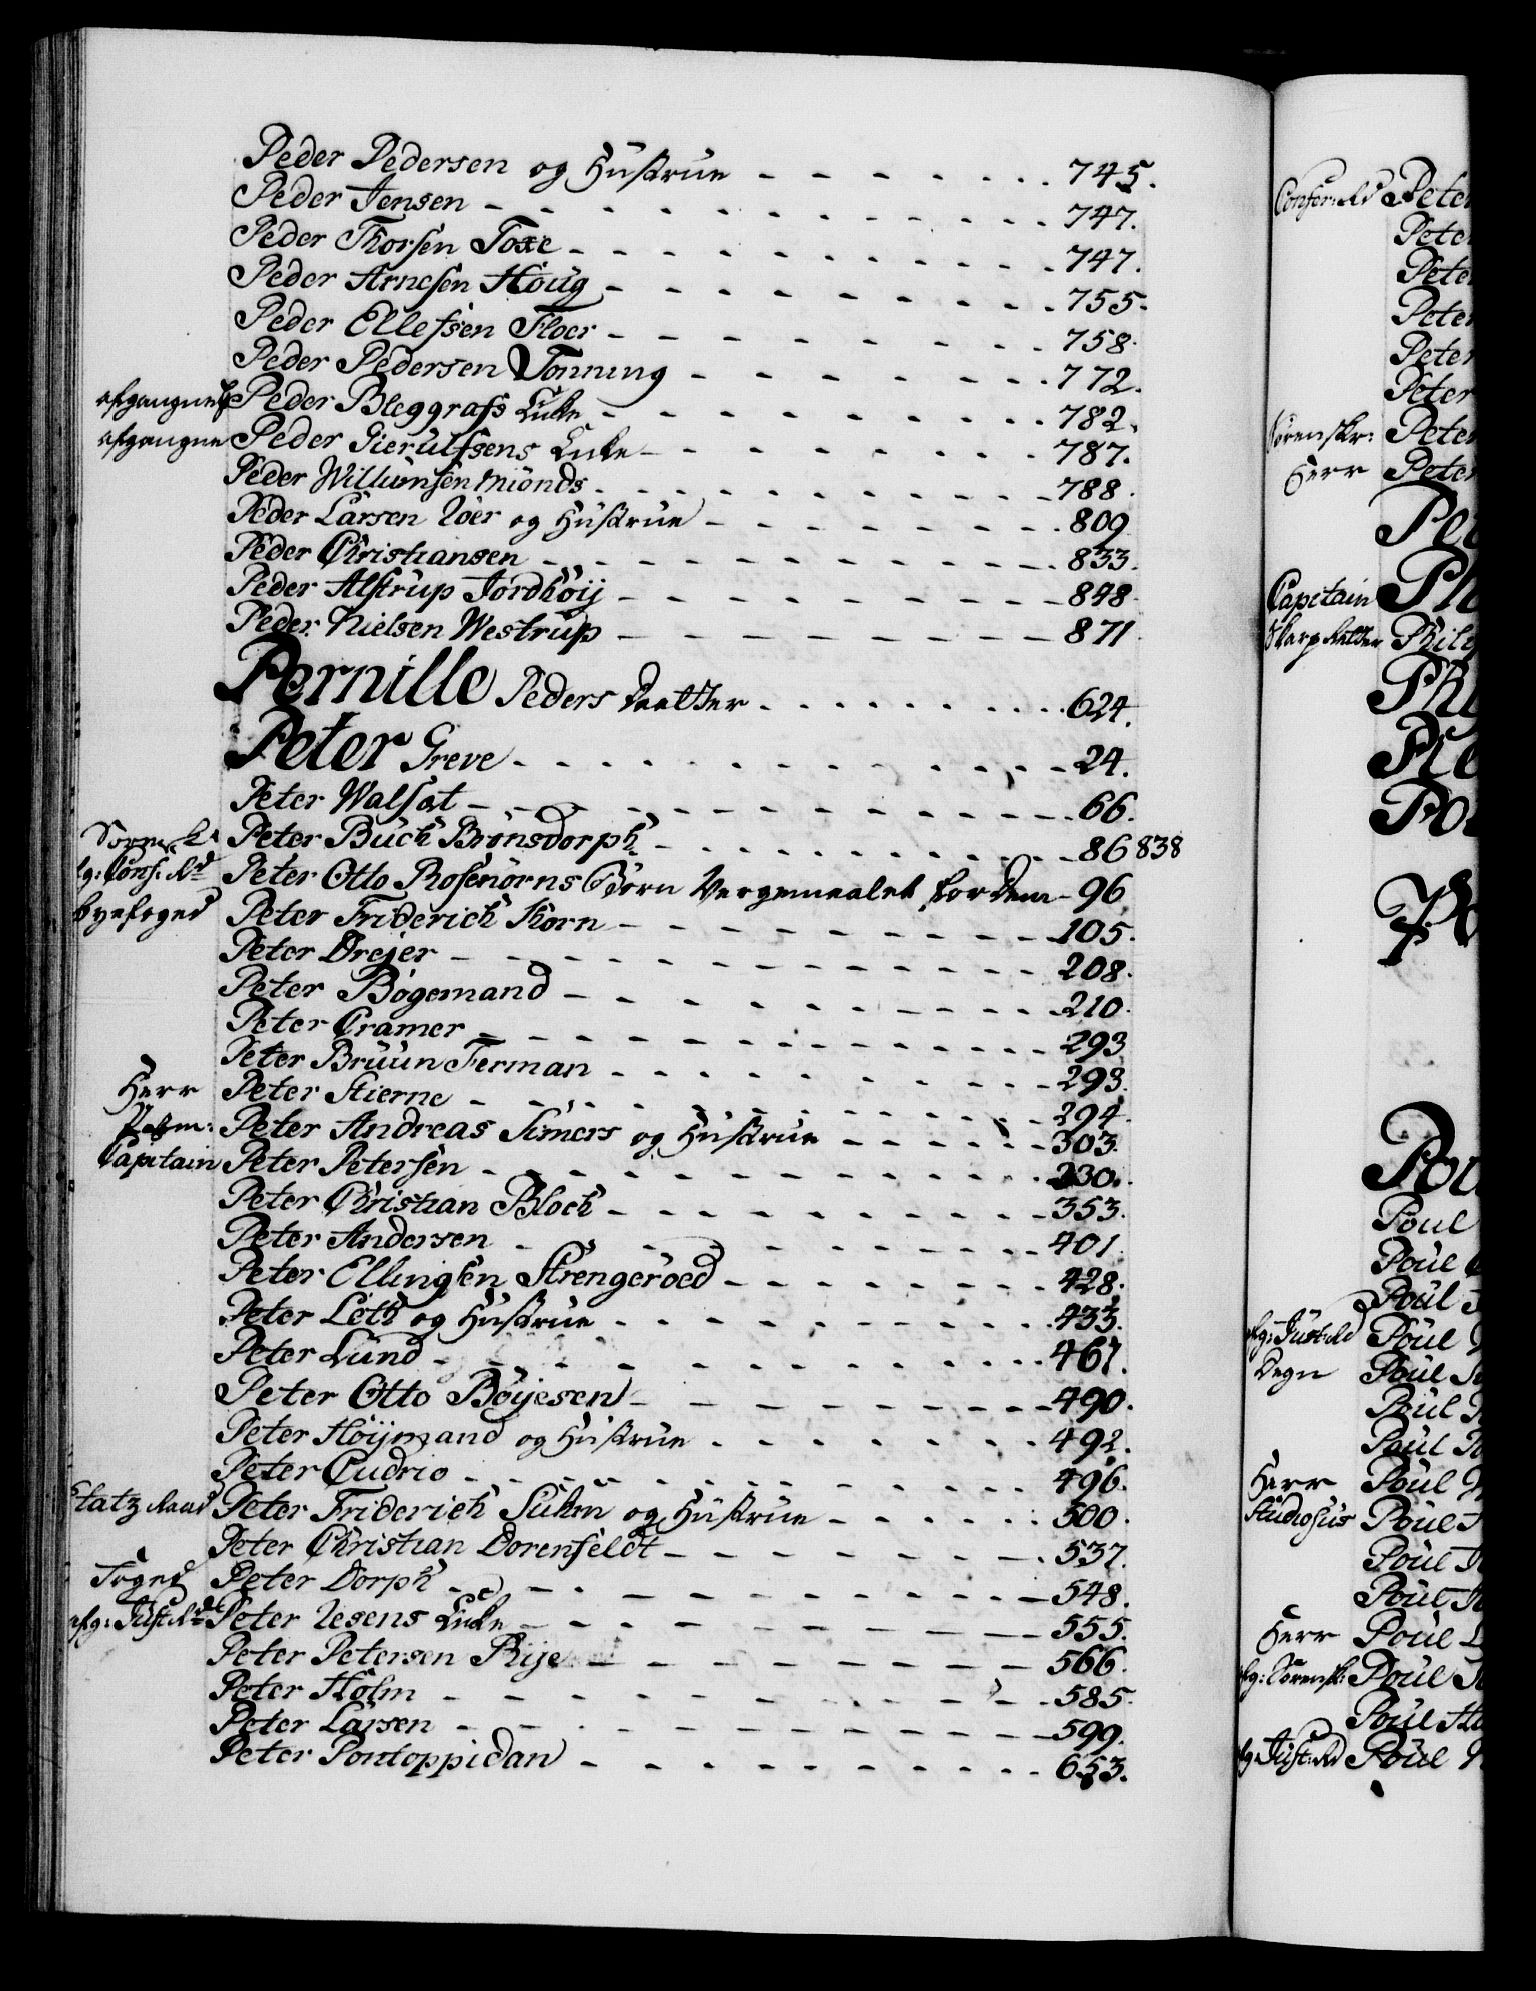 Peder Pedersen og Hustrue - - - - - - - - 745.
Peder Jensen - - - - - - - - - - - - 747.
Peder Thorsen Toxe - - - - - - - - - - 747.
Peder Arnesen Houg - - - - - - - - - 755.
Peder Ellefsen Floer - - - - - - - - 758.
Peder Pedersen Tonning - - - - - - - 772.
afgangne Peder Bleggrafs Enke - - - - - - - - 782.
afgangne Peder Gierulfsens Enke - - - - - - - - 787.
Peder Willumsen Miönds - - - - - - - - - 788.
Peder Larsen og Hustrue - - - - - - - 809
Peder Christiansen - - - - - - - - - - 833.
Peder Alstrup Jordhöij - - - - - - - - 848.
Peder Nielsen Westrup - - - - - - - - 871
Pernille Peders Daatter - - - - - - - - 624.
Peter Greve - - - - - - - - - - - - 24.
Peter Walsøt - - - - - - - - - - - - 66.
Peter Buch Brönsdorph - - - - - - - - - 86 838
fg: Conf: Rd Peter Otto Rosenörns Börn Vergemaalet for dem - 96
byefoged Peter Friderich Korn - - - - - - - - - 105.
Peter Drejer - - - - - - - - - - - - 208.
Peter Bögemand - - - - - - - - - - 210.
Peter Cramer - - - - - - - - - - - - 293
Peter Bruun Ferman - - - - - - - - - 293.
Herr Peter Stierne - - - - - - - - - - - - 294.
Peter Andreas Simers og Hustrue - - - - - - 303.
Capitain Peter Petersen - - - - - - - - - - - 330.
Peter Christian Bloch - - - - - - - - - 353.
Peter Andersen - - - - - - - - - - - 401.
Peter Ellingsen Strengeröed - - - - - - - - 428.
Peter Leth og Hustrue - - - - - - - - - 433.
Peter Lund - - - - - - - - - - - - 467.
Peter Otto Böijesen - - - - - - - - - 490.
Peter Höijmand og Hustrue - - - - - - - - 492.
Peter Cudrio - - - - - - - - - - - 496.
Etatz Raad Peter Friderich Suhm og Hustrue - - - - - - 500.
Peter Christian Dorenfeldt - - - - - - - - 537.
Foged Peter Dorph - - - - - - - - - - - 548.
afg: Just: Rd Peter Uesens Enke - - - - - - - - - - 555.
Peter Petersen Rije - - - - - - - - - 566.
Peter Holm - - - - - - - - - - - - 585.
Peter Larsen - - - - - - - - - - - 599.
Peter Pontoppidan - - - - - - - - - 653.
Confer: Rd Peter
Peter
Peter
Peter
Peter
Peter
Sorenskr: Peter
Herr Peter
Capitain
Skarp Retter
Poul
Poul
Poul
fg: Just: Rd Poul
Degn Poul
Poul
Paul
Herr Poul
Studiosus Poul
Poul
Poul
Herr Poul
fg: Sorensk: Poul
Poul
fg: Just: Rd Poul